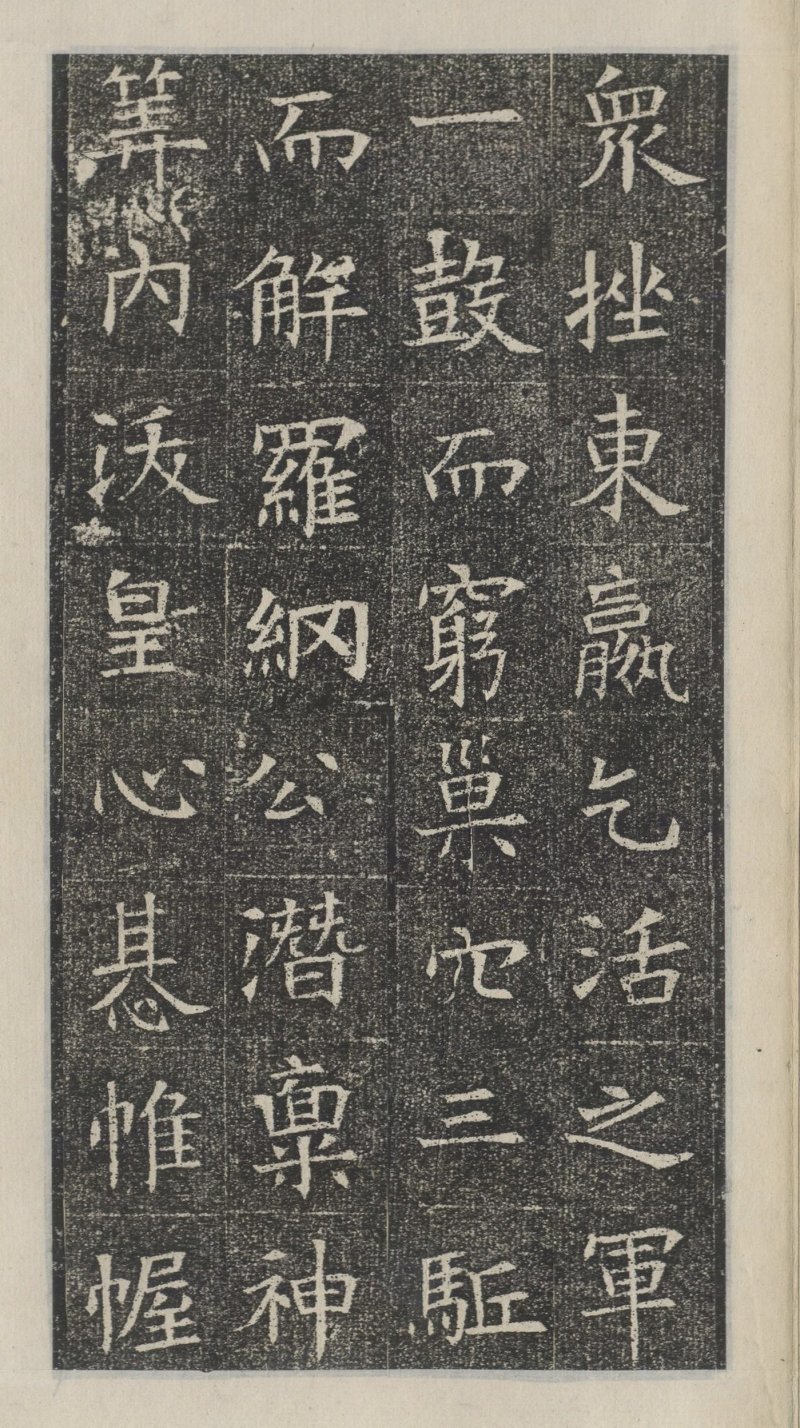 眾挫東嬴乞活之軍
一鼓而窮巢穴三駈
而解羅網公潜稟神
筭內沃皇心惎帷幄